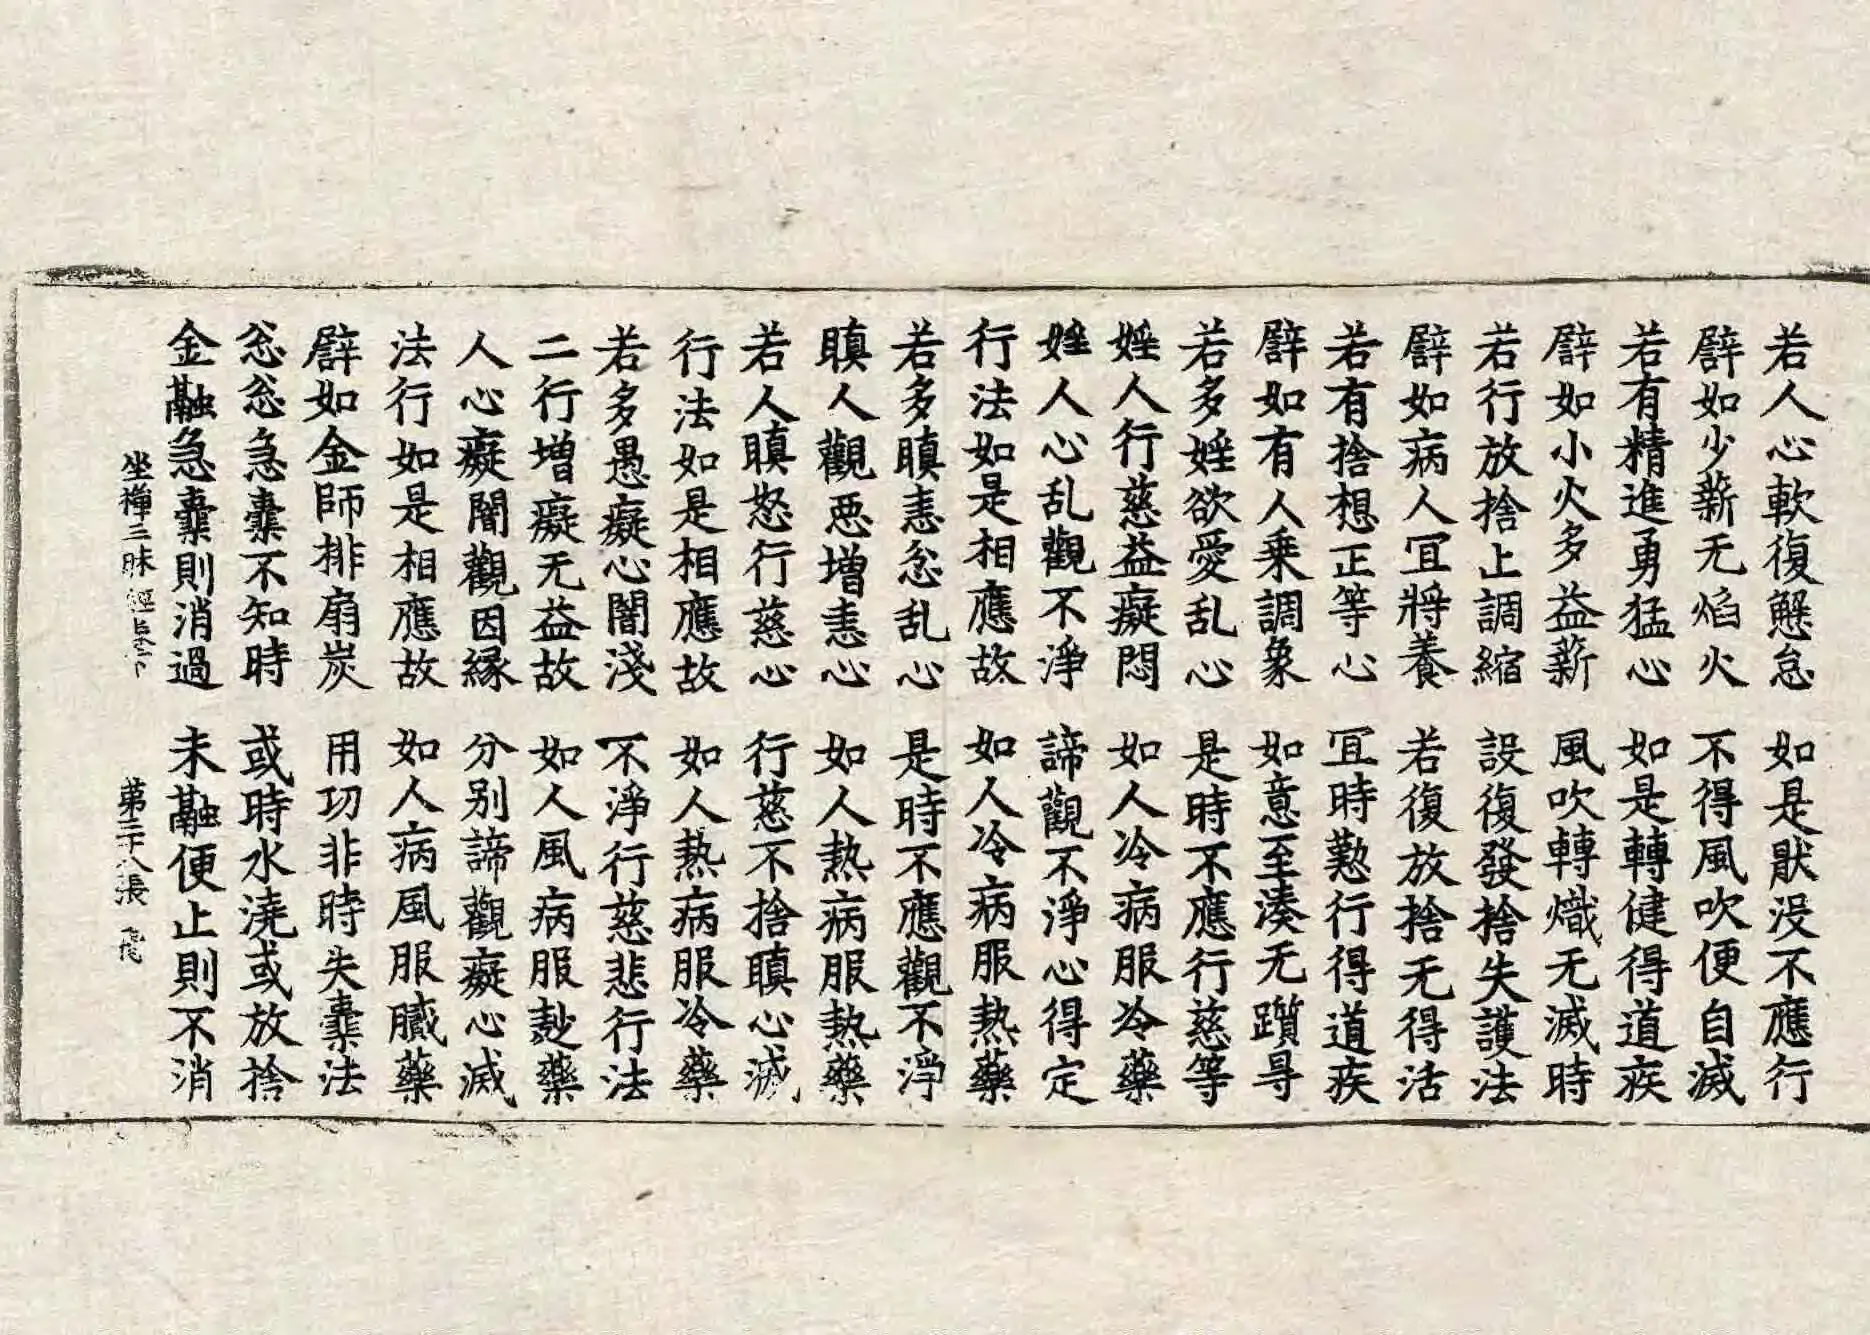 若人心軟復懈怠 如是猒没不應行
譬如少薪无焰火 不得風吹便自滅
若有精進勇猛心 如是轉健得道疾
譬如小火多益薪 風吹轉熾无滅時
若行放捨止調縮 設復發捨失護法
譬如病人冝將養 若復放捨无得活
若有捨想正等心 冝時懃行得道疾
譬如有人乗調象 如意至湊无躓㝵
若多婬欲愛乱心 是時不應行慈等
婬人行慈益癡悶 如人冷病服冷藥
婬人心乱觀不淨 諦觀不淨心得定
行法如是相應故 如人冷病服熱藥
若多瞋恚忿乱心 是時不應觀不淨
瞋人觀惡增恚心 如人熱病服熱藥
若人瞋怒行慈心 行慈不捨瞋心滅
行法如是相應故 如人熱病服冷藥
若多愚癡心闇淺 不淨行慈悲行法
二行增癡无益故 如人風病服麨藥
人心癡闇觀因緣 分别諦觀癡心滅
法行如是相應故 如人病風服膩藥
譬如金師排扇炭 用功非時失橐法
忩忩急橐不知時 或時水澆或放捨
金融急橐則消過 未融便止則不消
坐禪三昧經 第二十八張